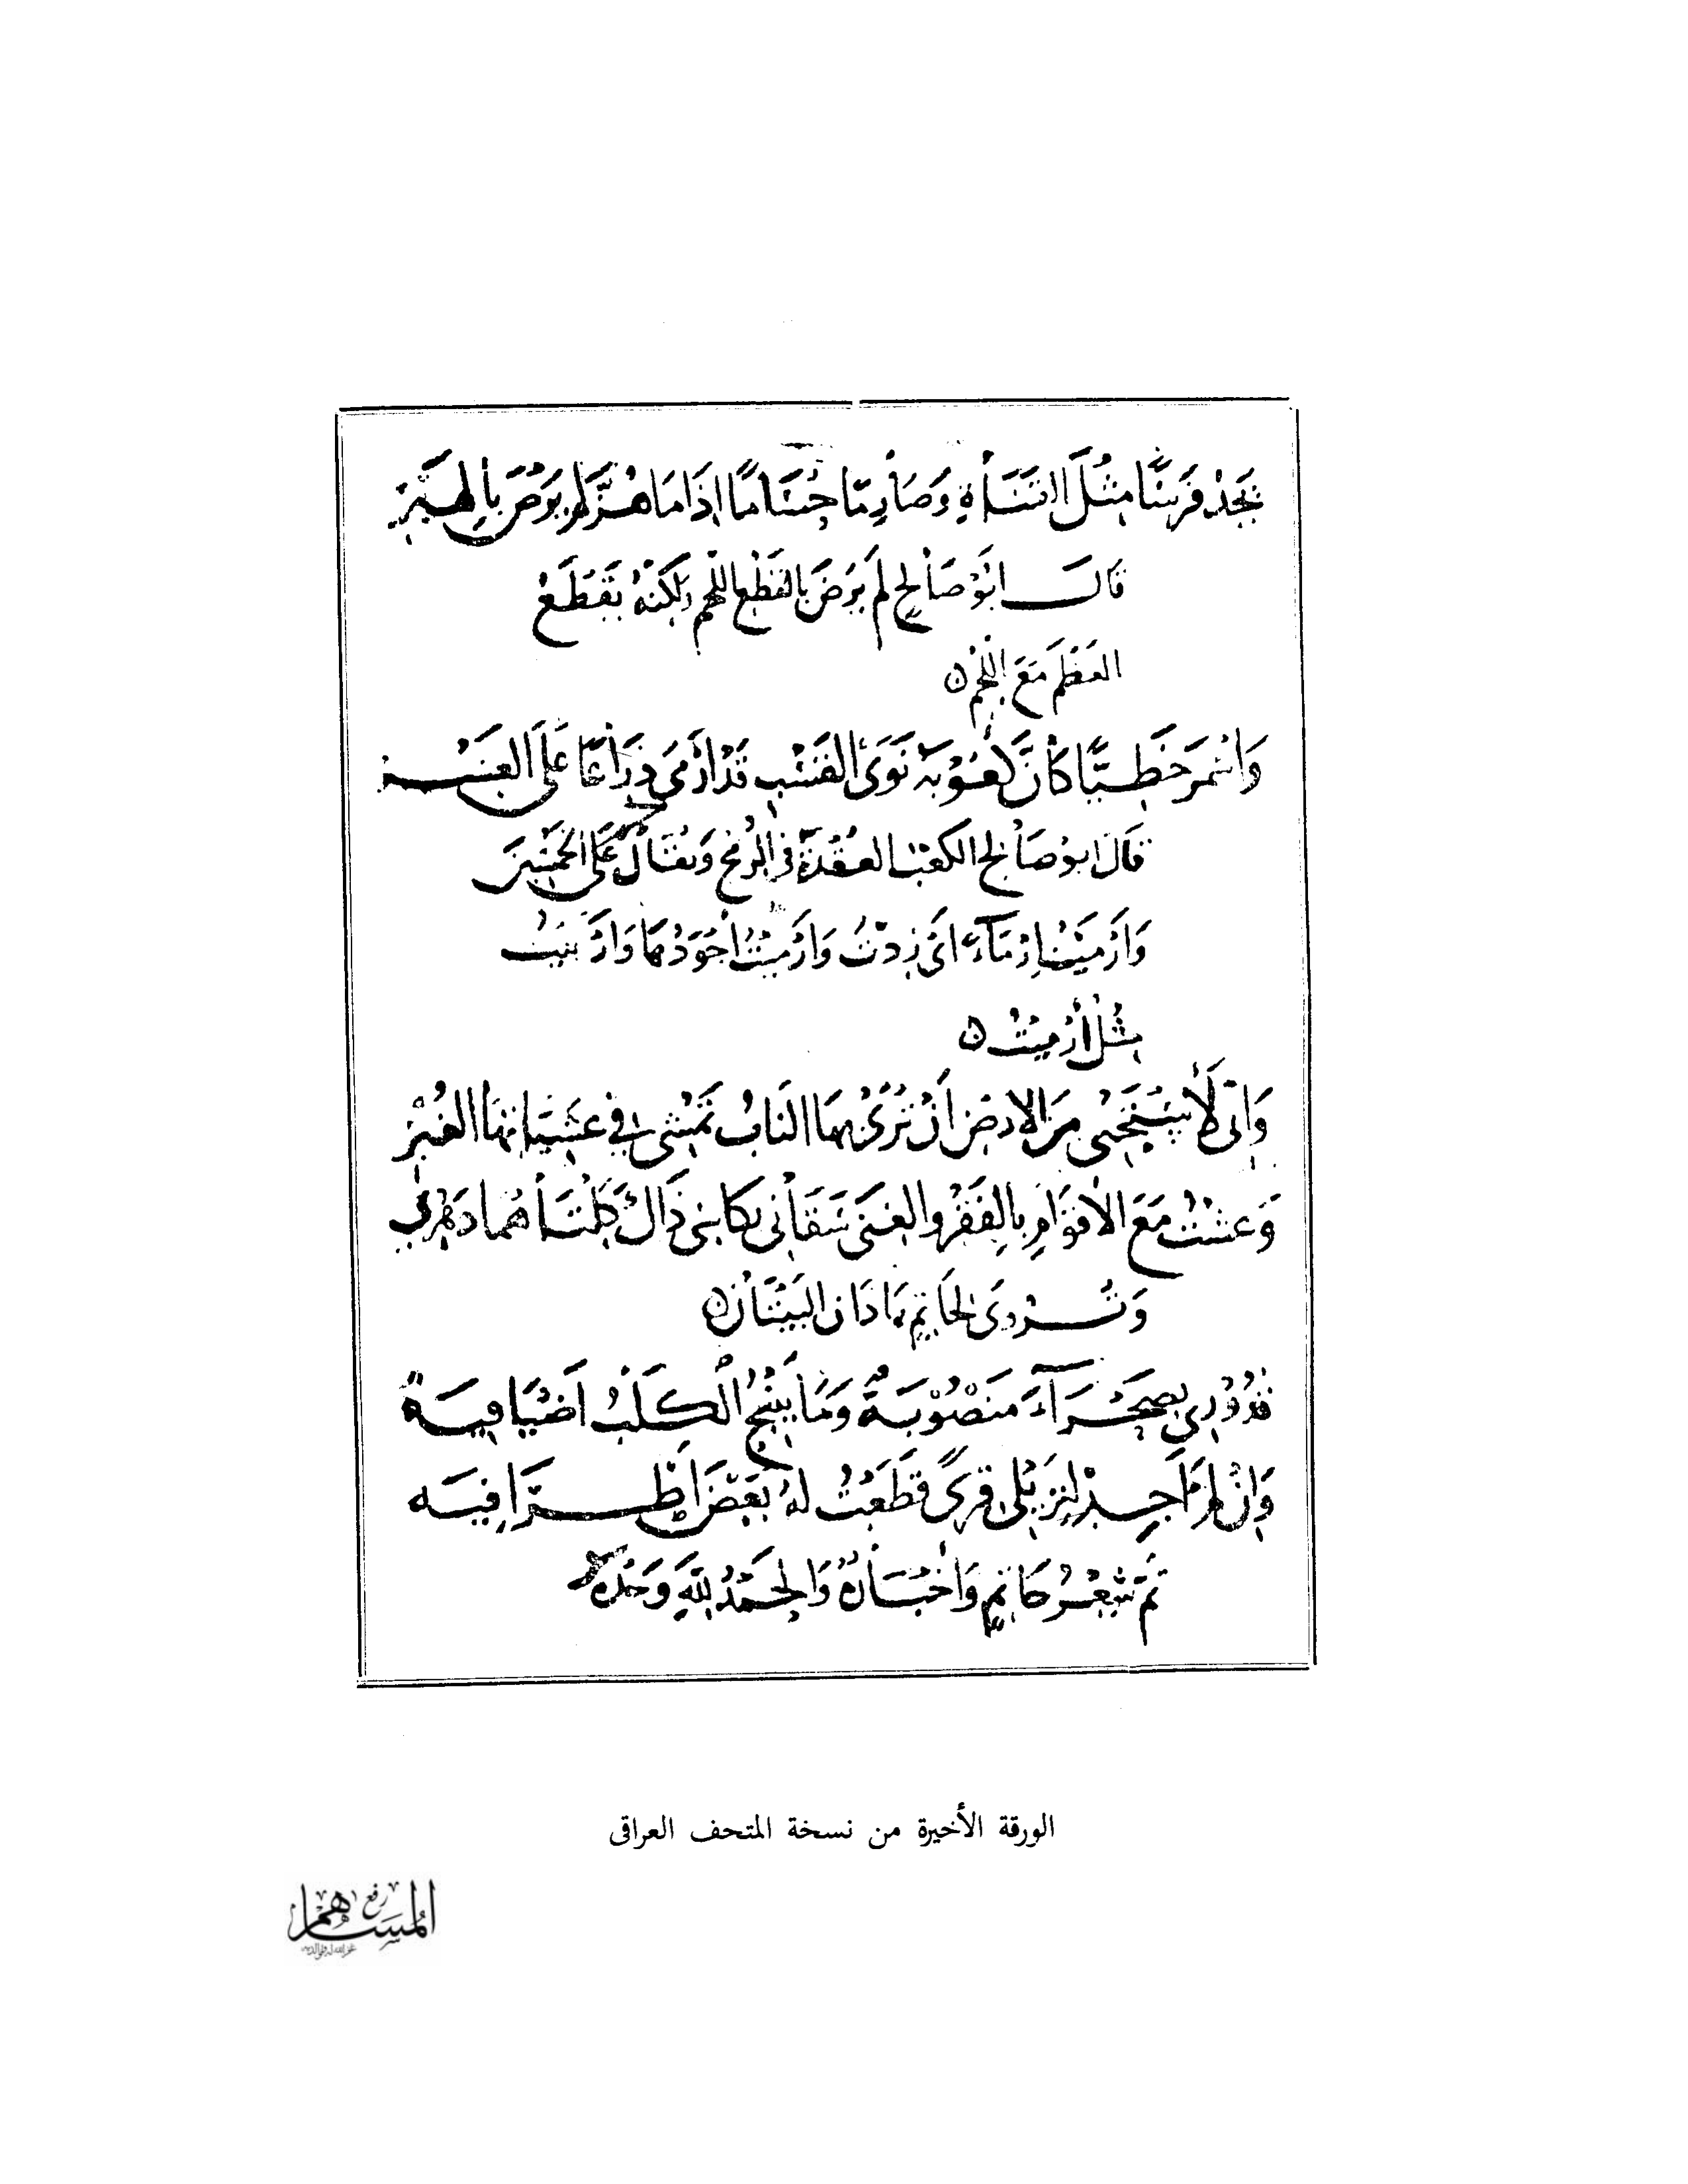 يَجِدْ فَرَسًا مِثْلَ القَنَاةِ وَصَارِمًا حُسَامًا اِذَا مَا هُزَّ لَمْ يَرْضَ بِالهَبْرِ
قَالَ ابُوْ صَالِحٍ لَمْ يَرْضَ بِالقَطْعِ اللحم وَلَكِنَّهُ يَقْطَعُ
العَظْمَ مَعَ اللَّحْمِ ه
وَاسْمَرَ خَطِّيًّا كَانَّ كُعُوْبَهُ نَوَى القَسْبِ قَدْ ارْمَى ذِرَاعًا عَلَى العَشْرِ
قَالَ ابو صَالِح الكعْبُ العُقْدَةُ فى الرُّمْحِ وَيُقَالُ عَلَى الخَمْسِيْنَ
وَارْمَيْتُ اِرْمَآءً اىْ زِدْتُ وَارْمَيْتُ اجْوَدُهُمَا وَارْبَيْتُ
مِثْلُ أرْمَيْتُ ه
وَاِنّى لَأسْتَحْيِى مِنَ الارضِ أنْ تُرَى بِهَا النَابُ تَمْشِى فِي عَشِيَّاتِهَا الغُبْرِ
وَعِشْتُ مَعَ الأقوَامِ بِالفَقْرِ والغِنَى سَقَانِى بِكَاسَى ذَاكَ كِلْتَاهُمَا دَهْرِي
وَتُرْوَى لحَاتِمٍ هَاذَانِ البَيْتَانِ ه
قُدُوْرِى بِصَحْرَآءَ مَنْصُوْبَةٌ وَمَا يَنْبَحُ الْكَلْبُ اَضْيَافِيَهْ
وَاِنْ لَمْ أَجِدْ لِنَزِيْلِى قِرىً قَطَعْتُ لَهُ بَعْضَ اَطْرَافِيَه
تَمَّ شِعْرُ حَاتِمٍ وَاَخْبَارُهُ وَالحَمْدُ لِلَّهِ وَحْدَهُ
الورقة الأخيرة من نسخة المتحف العراقى
رفع
المساهم
غفر الله له ولوالديه